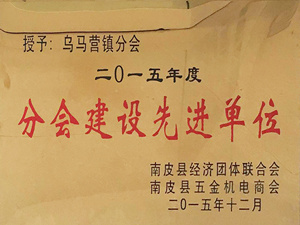 授予：乌马营镇分会
二〇一五年度
分会建设先进单位
南皮县经济团体联合会
南皮县五金机电商会
二〇一五年十二月